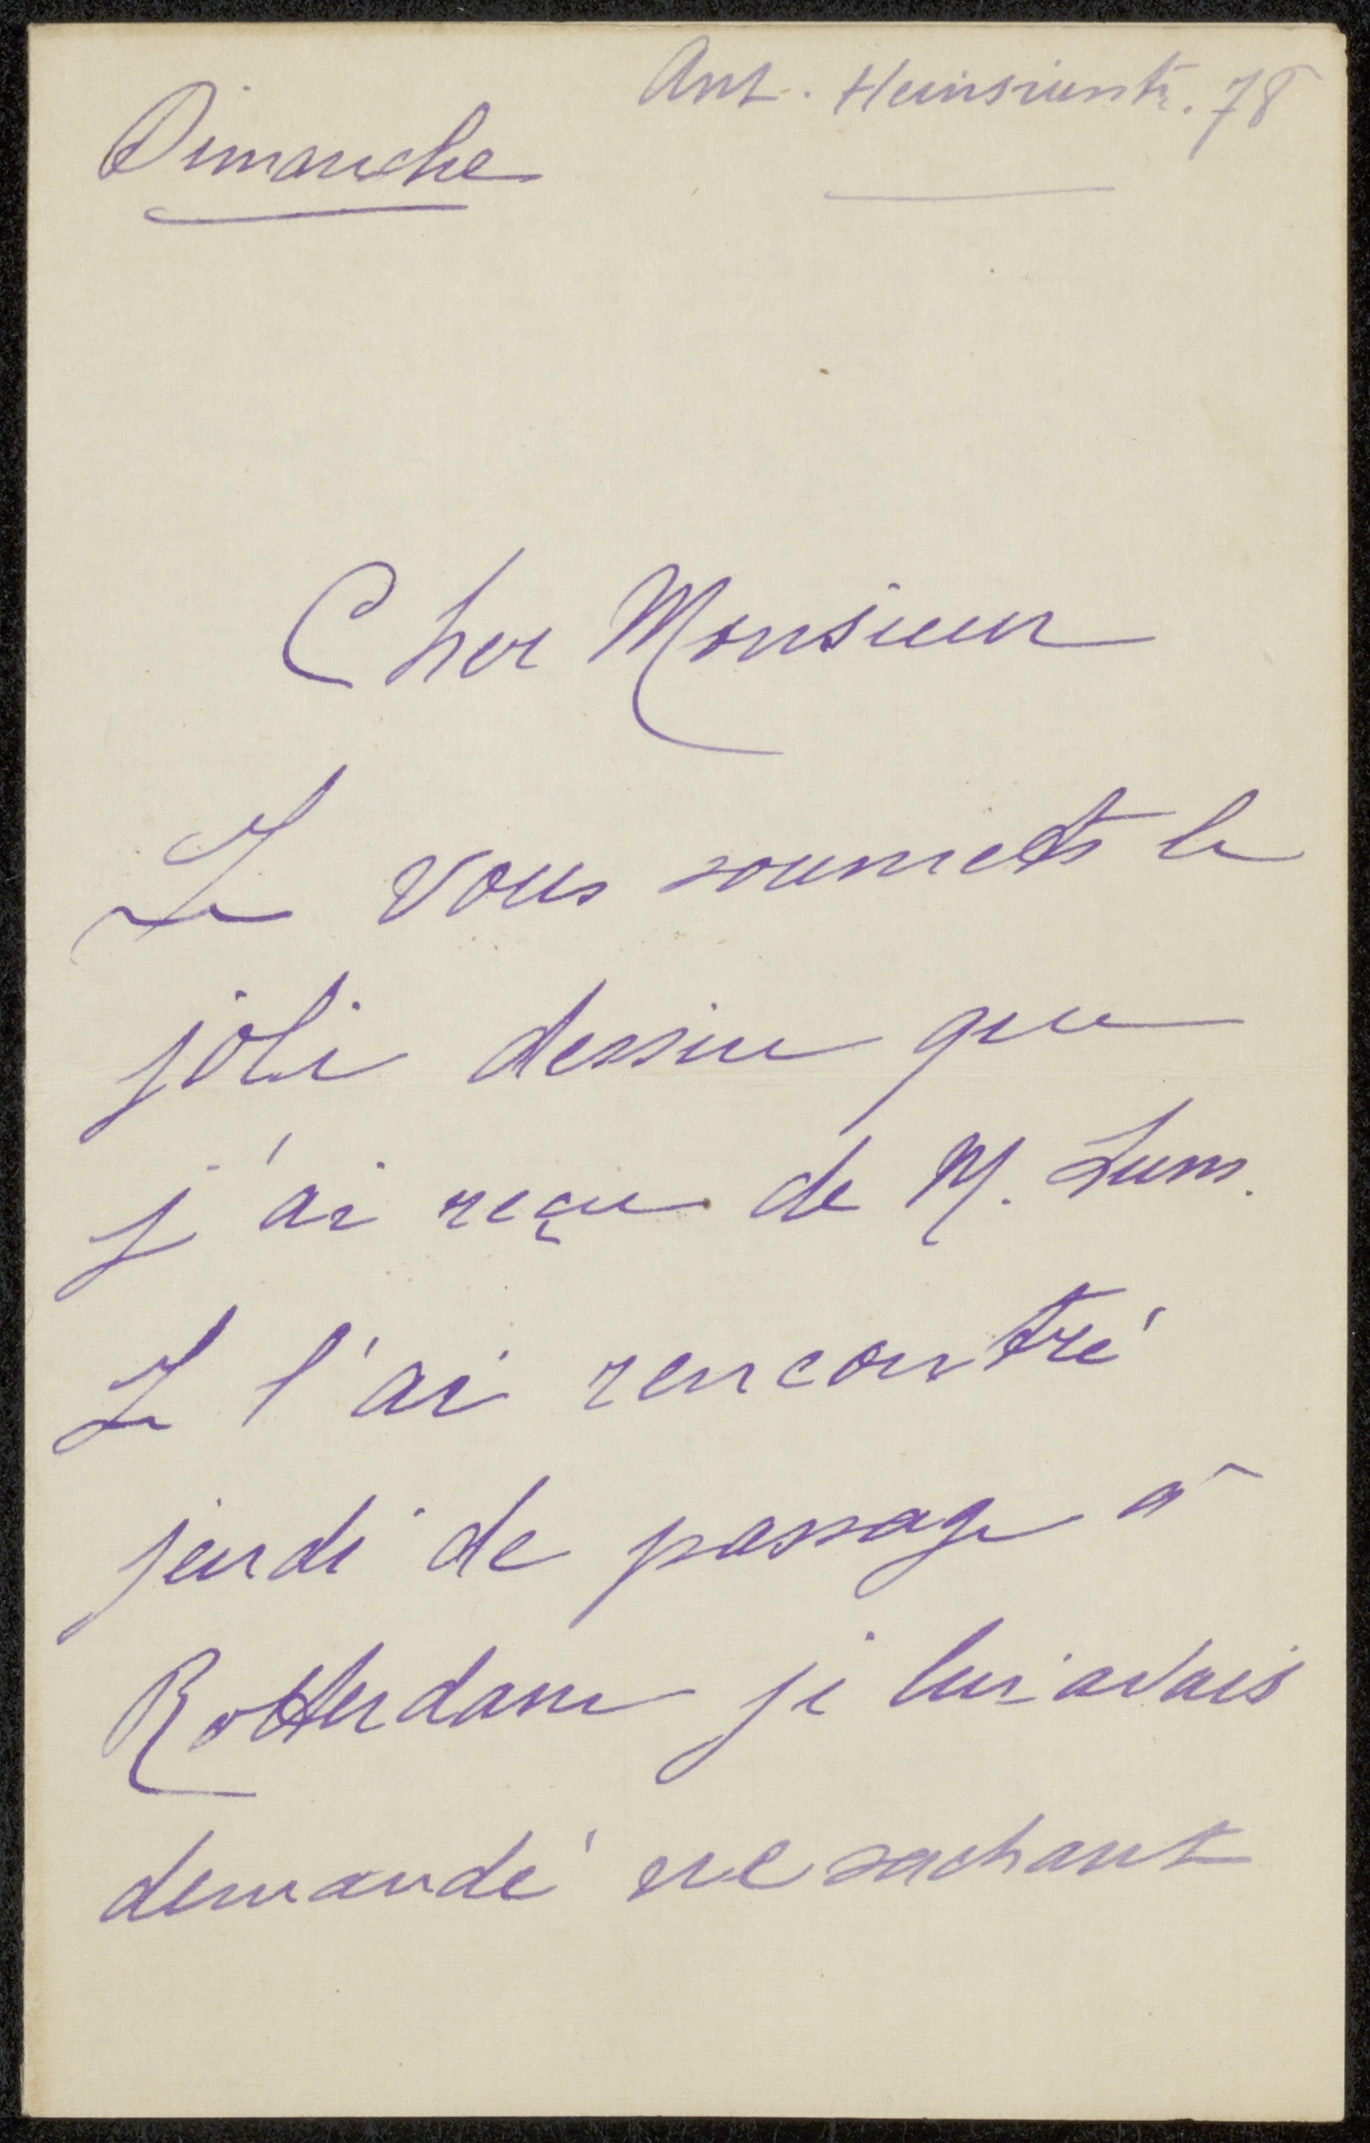 Ant. Heinsiusstr. 78
Dimanche
Cher Monsieur
Je vous soumets le
joli dessin que
j'ai reçu de M. Lum.
Je l'ai rencontré
jeudi de passage à
Rotterdam je lui avais
demandé ne sachant